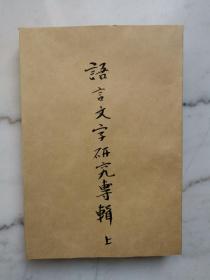 語言文字研究專輯 上